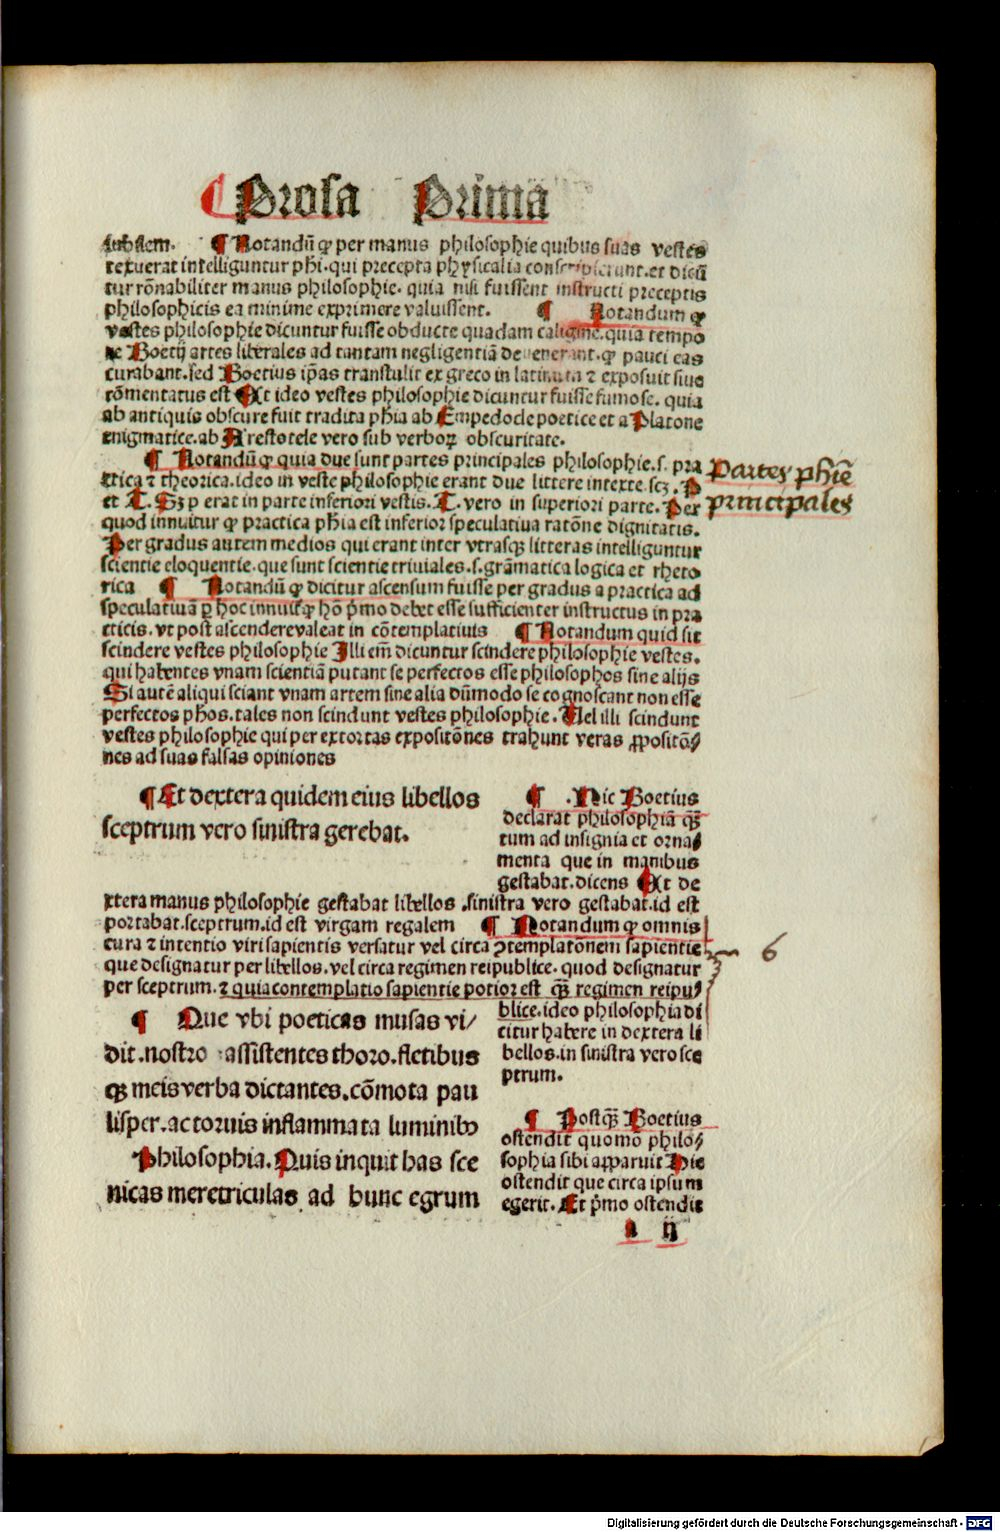 Prosa Prima
subtilem. ¶ Notandũ ꝙ per manus philosophie quibus suas vestes
texuerat intelliguntur phi. qui precepta physicalia conscripserunt. et dicũ
tur rõnabiliter manus philosophie. quia nisi fuissent instructi preceptis
philosophicis ea minime exprimere valuissent. ¶ Notandum ꝙ
vestes philosophie dicuntur fuisse obducte quadam caligine. quia tempo
re Boetij artes liberales ad tantam negligentiã devenerant. ꝙ pauci eas
curabant. sed Boetius ip̃as transtulit ex greco in latinum ⁊ exposuit siue
cõmentatus est Et ideo vestes philosophie dicuntur fuisse fumose. quia
ab antiquis obscure fuit tradita phĩa ab Empedocle poetice et a Platone
enigmatice. ab Arestotele vero sub verboꝝ obscuritate.
¶ Notandũ ꝙ quia due sunt partes principales philosophie. s. pra
ctica ⁊ theorica. ideo in veste philosophie erant due littere intexte scꝫ. P
et T. Sꝫ p erat in parte inferiori vestis. T. vero in superiori parte. Per
quod innuitur ꝙ practica phĩa est inferior speculatiua ratõne dignitatis.
Per gradus autem medios qui erant inter vtrasqꝫ litteras intelliguntur
scientie eloquentie. que sunt scientie triuiales. s. grãmatica logica et rheto
rica ¶ Notandũ ꝙ dicitur ascensum fuisse per gradus a practica ad
speculatiuã ꝑ hoc innuit ꝙ hõ p̃mo debet esse sufficienter instructus in pra
cticis. vt post ascendere valeat in cõtemplatiuis ¶ Notandum quid sit
scindere vestes philosophie Illi em̃ dicuntur scindere philosophie vestes.
qui habentes vnam scientiã putant se perfectos esse philosophos sine alijs
Si autẽ aliqui sciant vnam artem sine alia dũmodo se cognoscant non esse
perfectos phos. tales non scindunt vestes philosophie. Uel illi scindunt
vestes philosophie qui per extortas expositõnes trahunt veras ꝓpositõ⸗
nes ad suas falsas opiniones
Partes phie
principales
¶ Et dextera quidem eius libellos
sceptrum vero sinistra gerebat.
¶ Hic Boetius
declarat philosophiã qꝫ̃
tum ad insignia et orna⸗
menta que in manibus
gestabat. dicens Et de
xtera manus philosophie gestabat libellos . sinistra vero gestabat. id est
portabat. sceptrum. id est virgam regalem ¶ Notandum ꝙ omnis
cura ⁊ intentio viri sapientis versatur vel circa ꝯtemplatõnem sapientie
que designatur per libellos. vel circa regimen reipublice. quod designatur
per sceptrum. ⁊ quia contemplatio sapientie potior est qꝫ̃ regimen reipu⸗
6
blice. ideo philosophia di
citur habere in dextera li
bellos. in sinistra vero sce
ptrum.
¶ Que vbi poeticas musas vi/
dit. nostro assistentes thoro. fletibus
qꝫ meis verba dictantes. cõmota pau
lisper. ac toruis inflammata luminibꝰ
Philosophia. Quis inquit has sce
nicas meretriculas ad hunc egrum
¶ Postqꝫ̃ Boetius
ostendit quomõ philo⸗
sophia sibi apparuit Hic
ostendit que circa ipsum
egerit. Et p̃mo ostendit
a ij
Digitalisierung gefördert durch die Deutsche Forschungsgemeinschaft - DFG